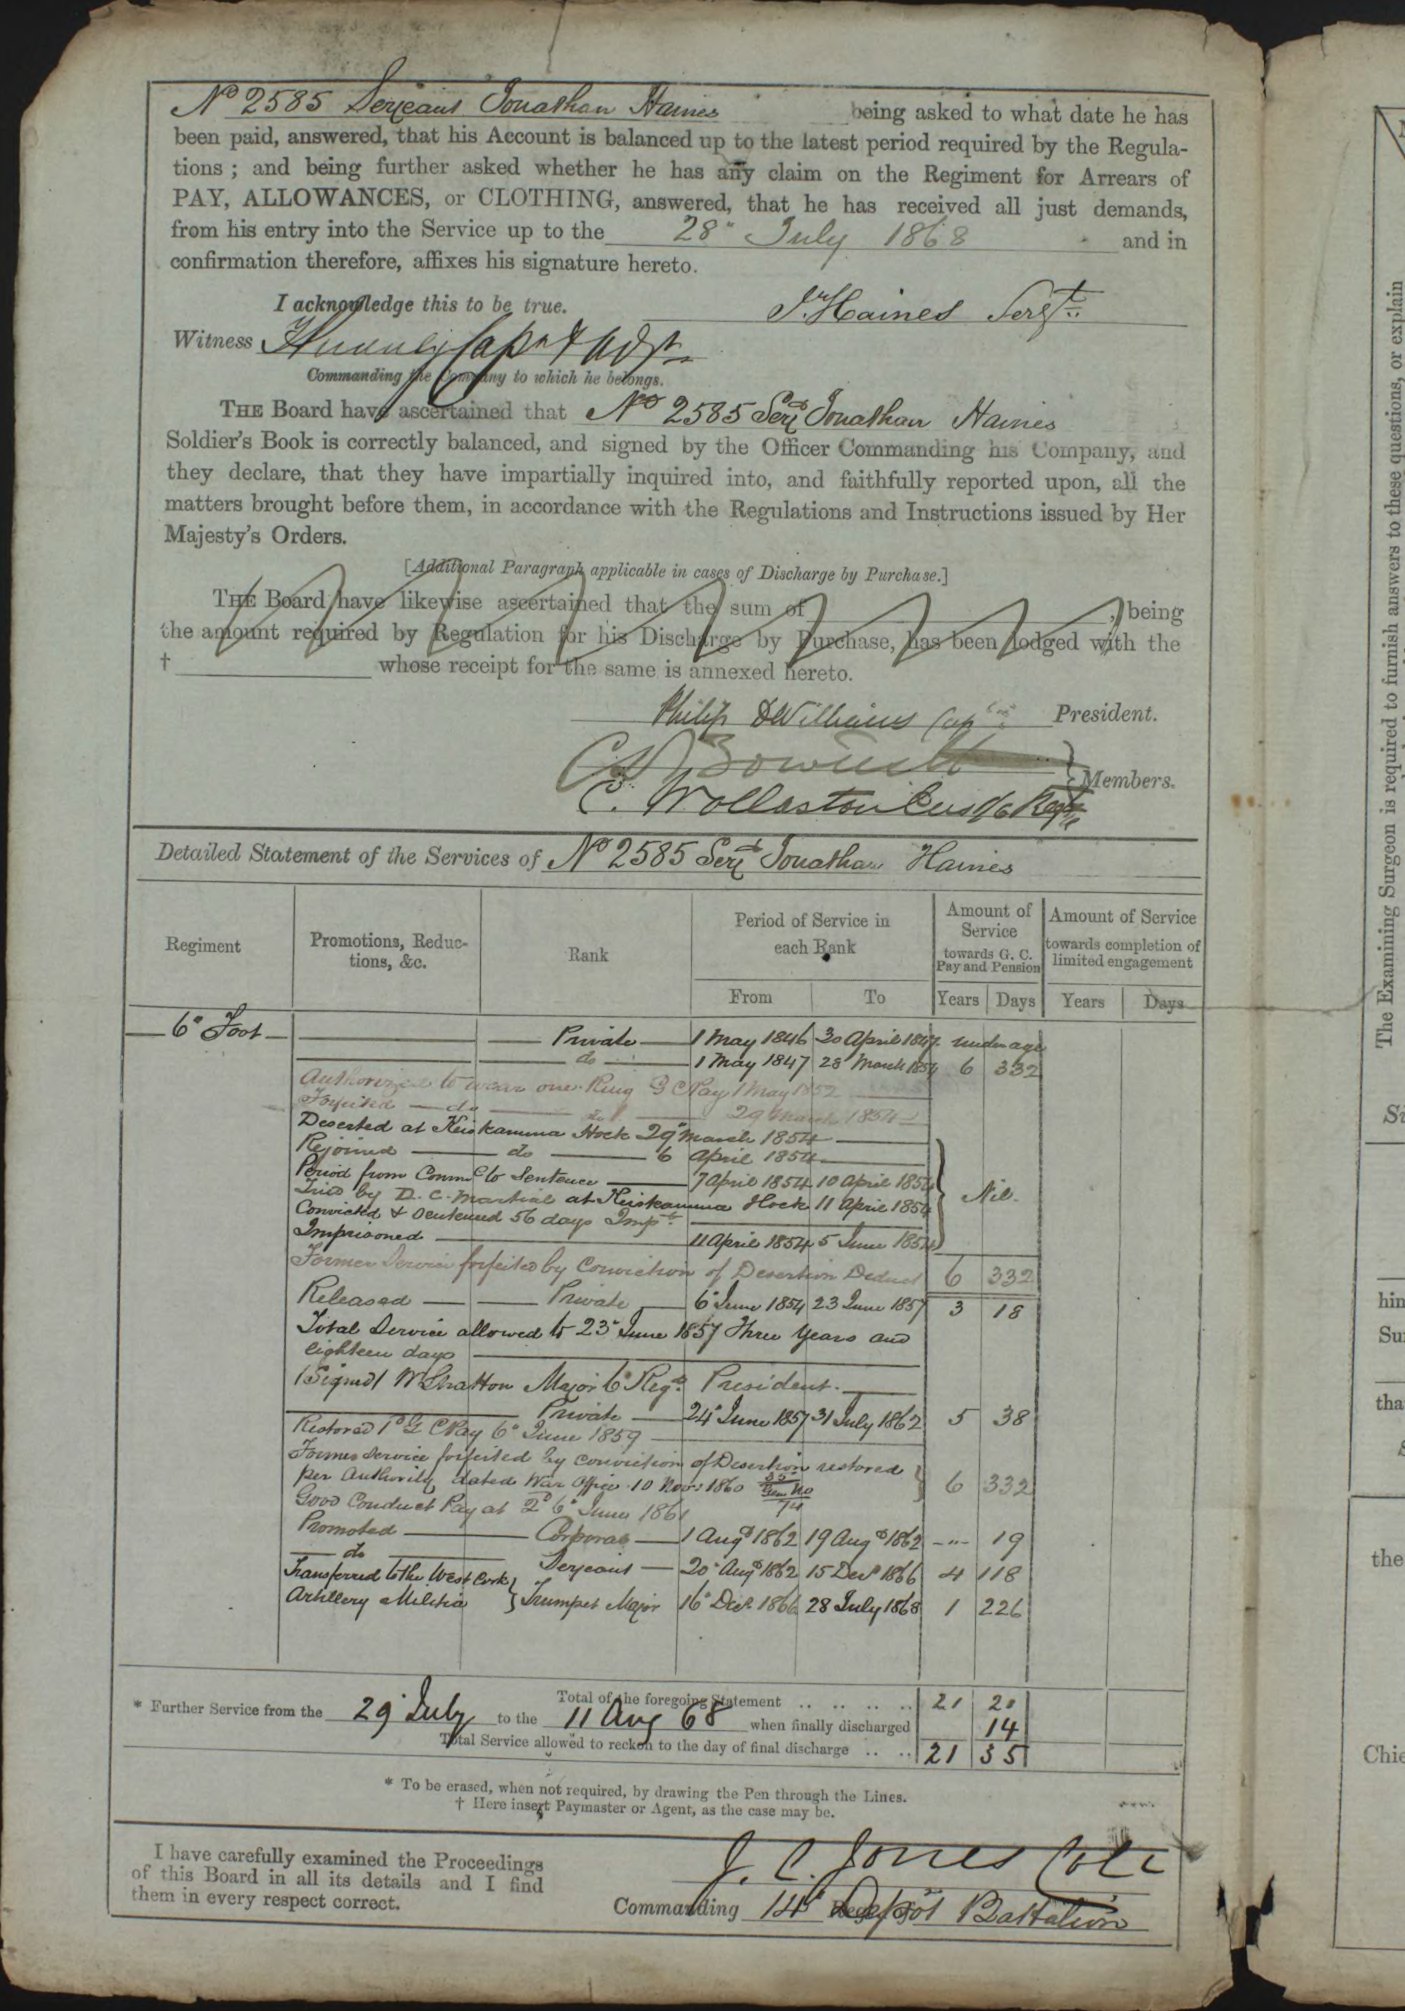 No 2585 Serjeant Jonathan Haines being asked to what date he has
been paid, answered, that his Account is balanced up to the latest period required by the Regula-
tions ; and being further asked whether he has any claim on the Regiment for Arrears of
PAY, ALLOWANCES, or CLOTHING, answered, that he has received all just demands,
from his entry into the Service up to the 28" July 1868 and in
confirmation therefore, affixes his signature hereto.
I acknowledge this to be true. J. Haines Sergt.
Witness Capn & Adjt
Commanding the Company to which he belongs.
THE Board have ascertained that No 2585 Serjt Jonathan Haines
Soldier's Book is correctly balanced, and signed by the Officer Commanding his Company, and
they declare, that they have impartially inquired into, and faithfully reported upon, all the
matters brought before them, in accordance with the Regulations and Instructions issued by Her
Majesty's Orders.
[Additional Paragraph applicable in cases of Discharge by Purchase.]
THE Board have likewise ascertained that the sum of ; being
the amount required by Regulation for his Discharge by Purchase, has been lodged with the
† whose receipt for the same is annexed hereto.
Philip Williams Capn President.
Members.
C. Wollaston Ens 1/6 Regt
Detailed Statement of the Services of No 2585 Serjt Jonathan Haines
Regiment
Promotions, Reduc-
tions, &c.
Rank
Period of Service in
each Rank
From To
Amount of
Service
towards G. C.
Pay and Pension
Years Days
Amount of Service
towards completion of
limited engagement
Years Days
6" Foot Private 1 May 1846 30 April 1847 under age
do 1 May 1847 28 March 1854 6 332
Authorized to wear one Ring G C Pay 1 May 1852
Forfeited do do 29 March 1854
Deserted at Keiskamma Hoek 29" March 1854
Rejoined do 6 April 1854
Period from Commt to Sentence 7 April 1854 10 April 1854 Nil.
Tried by D. C. Martial at Keiskamma Hoek 11 April 1854
Convicted & Sentenced 56 days Impt.
Imprisoned 11 April 1854 5 June 1854
Former Service forfeited by Conviction of Desertion Deduct 6 332
Released Private 6" June 1854 23 June 1857 3 18
Total Service allowed to 23" June 1857 Three Years and
Eighteen days
(Signed) W Stratton Major 6" Regt. President.
Private 24" June 1857 31 July 1862 5 38
Restored 1d G C Pay 6" June 1859
Former Service forfeited by conviction of Desertion restored
per Authority dated War Office 10 Novr 1860 6 332
Good Conduct Pay at 2d 6" June 1861
Promoted Corporal 1 Augt 1862 19 Augt 1862 -"- 19
do Serjeant 20" Augt 1862 15 Decr 1866 4 118
Transferred to the West Cork
Artillery Militia } Trumpet Major 16" Decr 1866 28 July 1868 1 226
Total of the foregoing Statement .. .. .. .. 21 21
* Further Service from the 29" July to the 11 Aug 68 when finally discharged 14
Total Service allowed to reckon to the day of final discharge .. .. 21 35
* To be erased, when not required, by drawing the Pen through the Lines.
† Here insert Paymaster or Agent, as the case may be.
I have carefully examined the Proceedings
of this Board in all its details and I find
them in every respect correct.
J. C. Jones Coll
Commanding 14" Depot Battalion
The Examining Surgeon is required to furnish answers to these questions, or explain